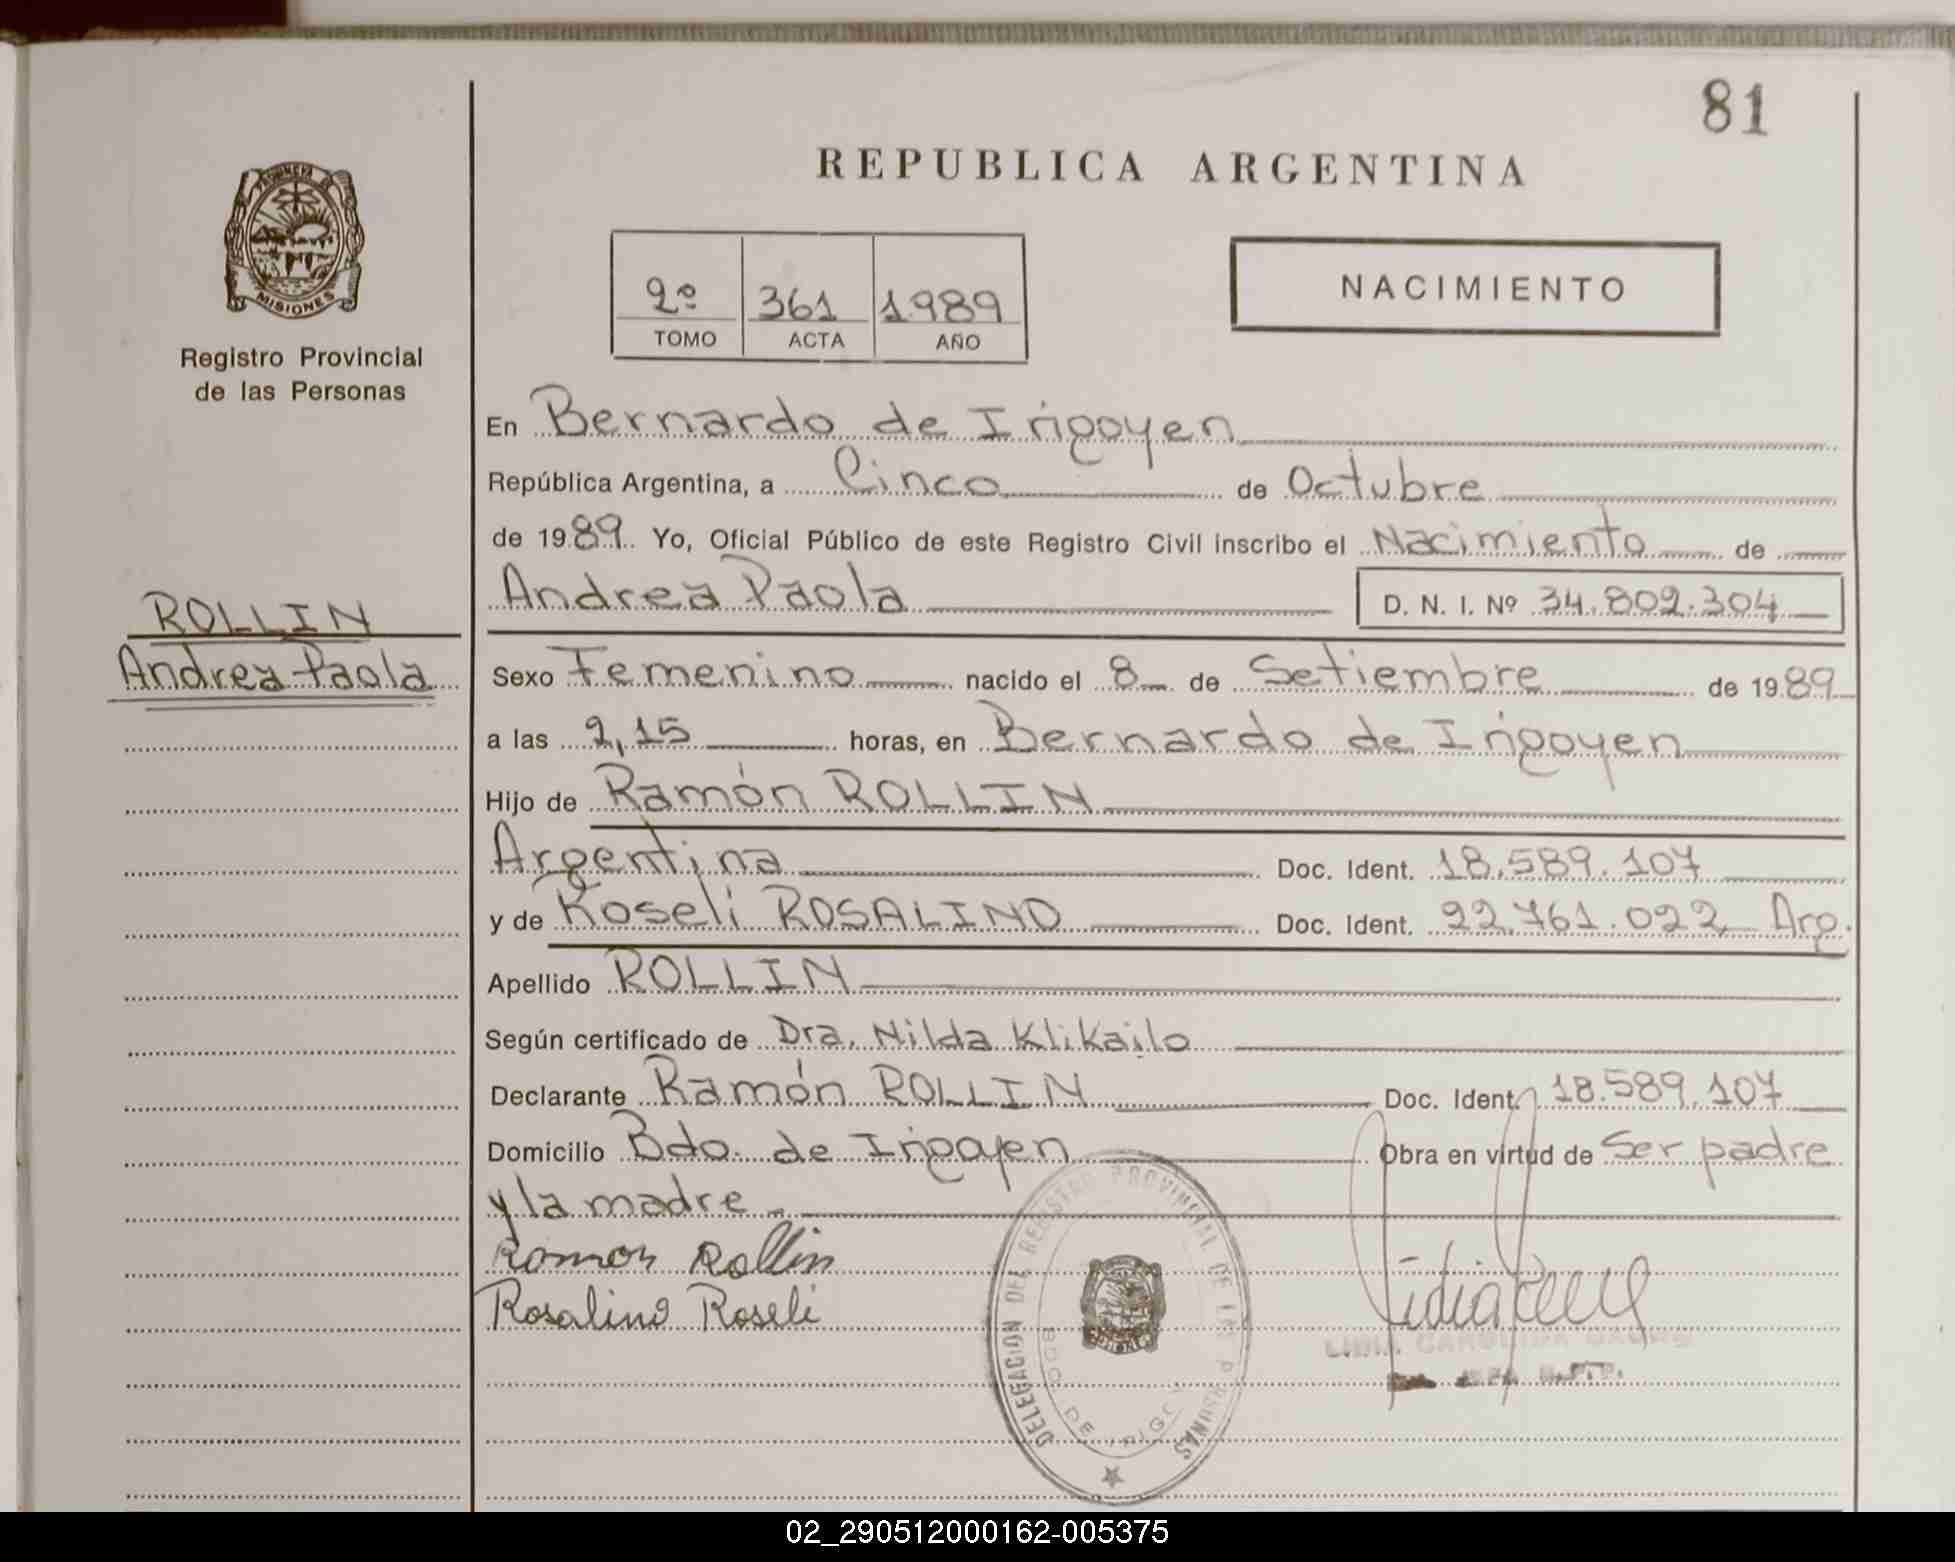 81
REPUBLICA ARGENTINA
PROVINCIA DE
MISIONES
Registro Provincial
de las Personas
2º 361 1989
TOMO ACTA AÑO
NACIMIENTO
En Bernardo de Irigoyen
República Argentina, a Cinco de Octubre
de 1989. Yo, Oficial Público de este Registro Civil inscribo el Nacimiento de
Andrea Paola D. N. I. Nº 34.802.304
ROLLIN
Andrea Paola
Sexo Femenino nacido el 8 de Setiembre de 1989
a las 2,15 horas, en Bernardo de Irigoyen
Hijo de Ramón ROLLIN
Argentina Doc. Ident. 18.589.107
y de Roseli ROSALINO Doc. Ident. 22.761.022 Arg.
Apellido ROLLIN
Según certificado de Dra. Nilda Klikailo
Declarante Ramón ROLLIN Doc. Ident. 18.589.107
Domicilio Bdo. de Irigoyen Obra en virtud de Ser padre
y la madre.
Ramon Rollin
Rosalino Roseli
DELEGACION DEL REGISTRO PROVINCIAL DE LAS PERSONAS
BDO. DE IRIGOY
LIDIA CAROLINA
JEFA
02_290512000162-005375